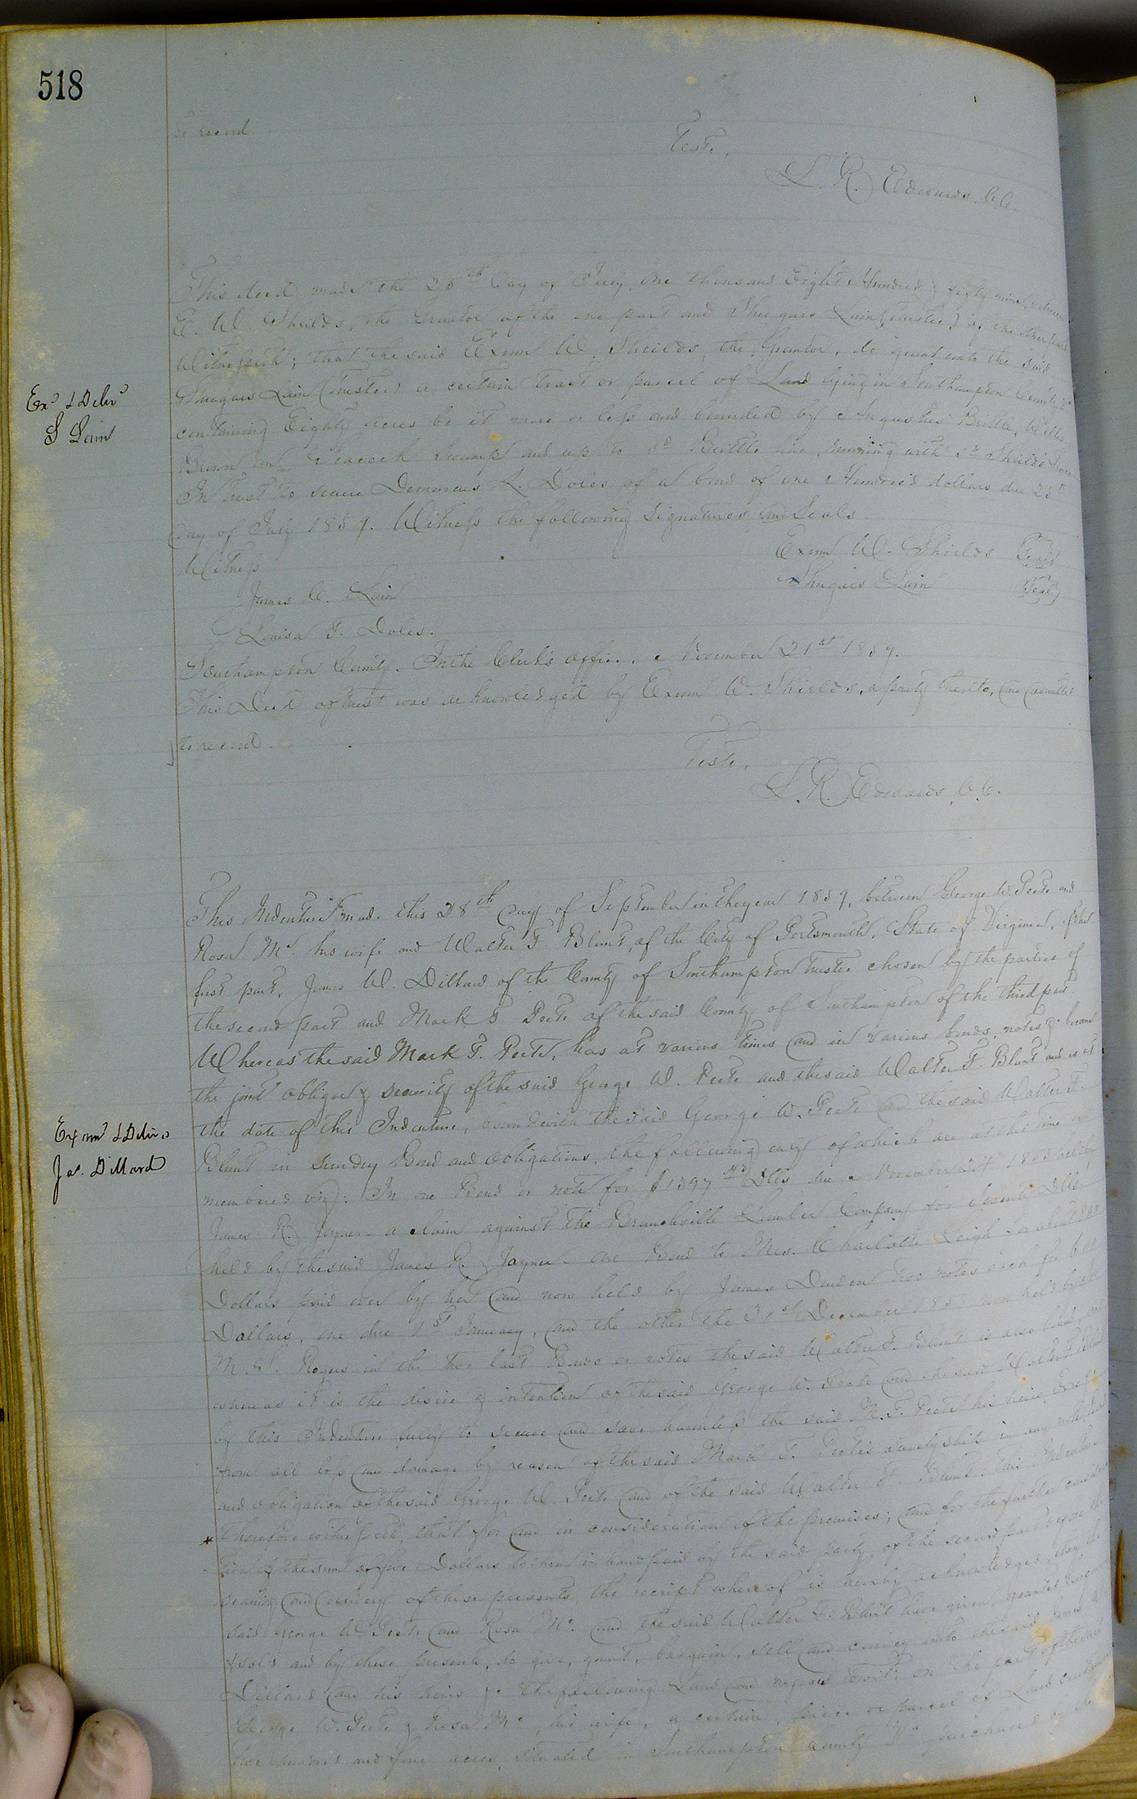 518
to record
Teste,
L. R. Edwards, C.C.
This deed made the 28th day of July, one thousand Eight Hundred & fifty nine, between
E. W. Shields, the Grantor of the one part and Shugars Lain (trustee) of the other part
Witnesseth; that the said Exum W. Shields the Grantor, do grant unto the said
Shugars Lain (trustee) a certain tract or parcel of Land lying in Southampton County
containing Eighty acres be it more or less and bounded by Augustus Brittle, Willis
Brown and Peacock Swamp and up to sd Brittle line, running with sd Shields line
In trust to secure Demarcus L. Doles of a bond of one Hundred dollars due 28th
day of July 1859. Witness the following Signatures and Seals
Exum W. Shields (Seal)
Witness
Shugars Lain (Seal)
James C. Lain
Louisa J. Doles.
Exd & Delivd
S Lain
Southampton County. In the Clerk's Office. November 21st 1859.
This Deed of trust was acknowledged by Exum W. Shields, a party thereto, and admitted
to record.
Teste,
L. R. Edwards, C.C.
This Indenture made this 28th day of September in the year 1859, between George W. Peete and
Rosa M. his wife and Walter F. Blunt, of the City of Portsmouth, State of Virginia, of the
first part, James W. Dillard of the County of Southampton trustee chosen by the parties of
the second part and Mark F. Peete of the said County of Southampton of the third part
Whereas the said Mark F. Peete, has at various times and in various bonds, notes &c. become
the joint obligor & security of the said George W. Peete and the said Walter F. Blunt and is at
the date of this Indenture, bound with the said George W. Peete and the said Walter F.
Blunt in Sundry Bond and obligations, the following only of which are at this time re
membered viz: In one Bond or note for $1397 Dlls due November
James R. Joyner a claim against The Branchville Lumber Company for
held by the said James R. Joyner one Bond to Mrs. Charlotte Leigh for about
Dollars paid over by her and now held by James Darden two notes each for
Dollars, one due 1st January, and the other the 31st December and held by
M. S. Rogers in the two last Bonds or notes the said Walter F. Blunt is
whereas it is the desire & intention of the said George W. Peete and the said Walter F. Blunt
by this Indenture fully to secure and save harmless the said M. F. Peete his heirs
from all loss and damage by reason of the said Mark F. Peete's suretyship in any
and obligation of the said George W. Peete and of the said Walter F. Blunt. This Indenture
therefore witnesseth, that for and in consideration of the premises; and for the further considera
tion of the sum of five Dollars to them in hand paid by the said party of the second part
sealing and delivery of these presents, the receipt whereof is hereby acknowledged, they the
said George W. Peete and Rosa M. and the said Walter F. Blunt have given, granted
& sold and by these presents, do give, grant, bargain, sell and convey unto the said James W.
Dillard and his heirs &c the following Land and negroes to wit: on the part of the said
George W. Peete & Rosa M., his wife, a certain piece or parcel of Land
two hundred and four acres, situated in Southampton County purchased by
Exmd & Delivd
Jas. Dillard